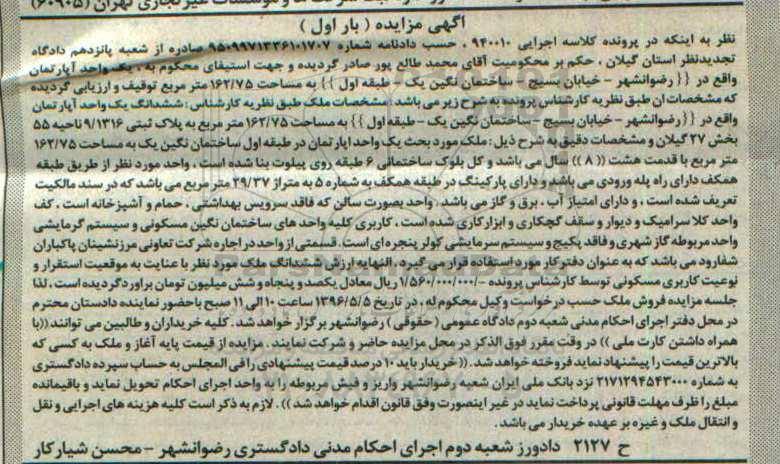 آگهی مزایده ( بار اول )
نظر به اینکه در پرونده کلاسه اجرایی ۹۴۰۰۱۰ ، حسب دادنامه شماره ۹۵۰۹۹۷۱۳۳۶۱۰۱۷۰۷ صادره از شعبه پانزدهم دادگاه
تجدیدنظر استان گیلان ، حکم بر محکومیت آقای محمد طالع پور صادر گردیده و جهت استیفای محکوم به ، یک واحد آپارتمان
واقع در {{ رضوانشهر - خیابان بسیج - ساختمان نگین یک - طبقه اول }} به مساحت ۱۶۲/۷۵ متر مربع توقیف و ارزیابی گردیده
که مشخصات ان طبق نظریه کارشناس پرونده به شرح زیر می باشد : مشخصات ملک طبق نظریه کارشناس : ششدانگ یک واحد آپارتمان
واقع در {{ رضوانشهر - خیابان بسیج - ساختمان نگین یک - طبقه اول }} به مساحت ۱۶۲/۷۵ متر مربع به پلاک ثبتی ۹/۱۳۱۶ ناحیه ۵۵
بخش ۲۷ گیلان و مشخصات دقیق به شرح ذیل : ملک مورد بحث یک واحد اپارتمان در طبقه اول ساختمان نگین یک به مساحت ۱۶۲/۷۵
متر مربع با قدمت هشت (( ۸ )) سال می باشد و کل بلوک ساختمانی ۶ طبقه روی پیلوت بنا شده است ، واحد مورد نظر از طریق طبقه
همکف دارای راه پله ورودی می باشد و دارای پارکینگ در طبقه همکف به شماره ۵ به متراژ ۲۹/۳۷ متر مربع می باشد که در سند مالکیت
تعریف شده است ، و دارای امتیاز آب ، برق و گاز می باشد ، واحد بصورت سالن که فاقد سرویس بهداشتی ، حمام و آشپزخانه است ، کف
واحد کلا سرامیک و دیوار و سقف گچکاری و ابزار کاری شده است ، کاربری کلیه واحد های ساختمان نگین مسکونی و سیستم گرمایشی
واحد مربوطه گاز شهری و فاقد پکیج و سیستم سرمایشی کولر پنجره ای است . قسمتی از واحد در اجاره شرکت تعاونی مرزنشینان پاکباران
شفارود می باشد که به عنوان دفتر کار مورد استفاده قرار می گیرد ، النهایه ارزش ششدانگ ملک مورد نظر با عنایت به موقعیت استقرار و
نوعیت کاربری مسکونی توسط کارشناس پرونده -/۱/۵۶۰/۰۰۰/۰۰۰ ریال معادل یکصد و پنجاه و شش میلیون تومان براورد گردیده است ، لذا
جلسه مزایده فروش ملک حسب درخواست وکیل محکوم له ، در تاریخ ۱۳۹۶/۵/۵ ساعت ۱۰ الی ۱۱ صبح باحضور نماینده دادستان محترم
در محل دفتر اجرای احکام مدنی شعبه دوم دادگاه عمومی ( حقوقی ) رضوانشهر برگزار خواهد شد . کلیه خریداران و طالبین می توانند ((با
همراه داشتن کارت ملی )) در وقت مقرر فوق الذکر در محل مزایده حاضر و شرکت نمایند . مزایده از قیمت پایه آغاز و ملک به کسی که
بالاترین قیمت را پیشنهاد نماید فروخته خواهد شد . (( خریدار باید ۱۰ درصد قیمت پیشنهادی را فی المجلس به حساب سپرده دادگستری
به شماره ۲۱۷۱۲۹۴۵۴۳۰۰۰ نزد بانک ملی ایران شعبه رضوانشهر واریز و فیش مربوطه را به واحد اجرای احکام تحویل نماید و باقیمانده
مبلغ را ظرف مهلت قانونی پرداخت نماید در غیر اینصورت وفق قانون اقدام خواهد شد )) . لازم به ذکر است کلیه هزینه های اجرایی و نقل
و انتقال ملک و غیره بر عهده خریدار می باشد .
ح ۲۱۲۷ دادورز شعبه دوم اجرای احکام مدنی دادگستری رضوانشهر - محسن شیار کار